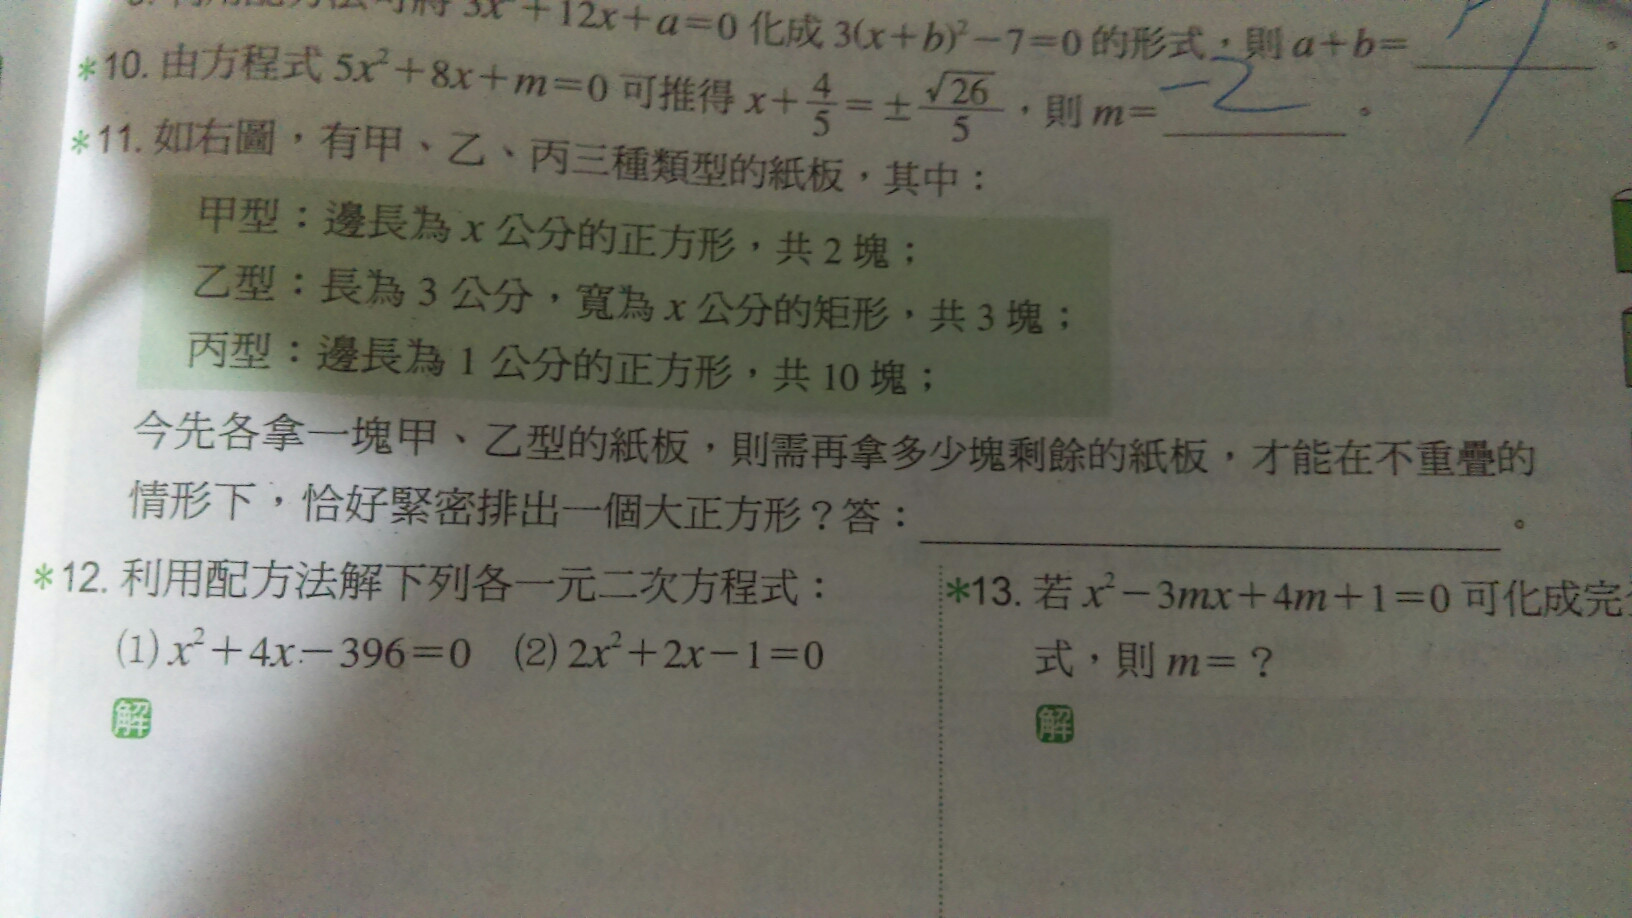 3x²+12x+a=0 化成 3(x+b)²-7=0 的形式，則 a+b=
*10. 由方程式 5x²+8x+m=0 可推得 x+4/5=±√26/5，則 m= -2 。
*11. 如右圖，有甲、乙、丙三種類型的紙板，其中：
甲型：邊長為 x 公分的正方形，共 2 塊；
乙型：長為 3 公分，寬為 x 公分的矩形，共 3 塊；
丙型：邊長為 1 公分的正方形，共 10 塊；
今先各拿一塊甲、乙型的紙板，則需再拿多少塊剩餘的紙板，才能在不重疊的
情形下，恰好緊密排出一個大正方形？答： 。
*12. 利用配方法解下列各一元二次方程式：
(1) x²+4x-396=0 (2) 2x²+2x-1=0
解
*13. 若 x²-3mx+4m+1=0 可化成完
式，則 m=？
解